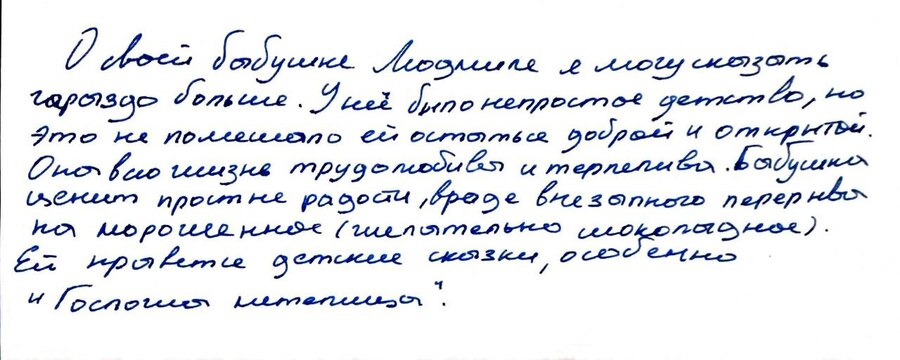 О своей бабушке Людмиле я могу сказать
гораздо больше. У неё было непростое детство, но
это не помешало ей остаться доброй и открытой.
Она всю жизнь трудолюбива и терпелива. Бабушка
ценит простые радости, вроде внезапного перерыва
на мороженное (желательно шоколадное).
Ей нравятся детские сказки, особенно
"Госпожа метелица".